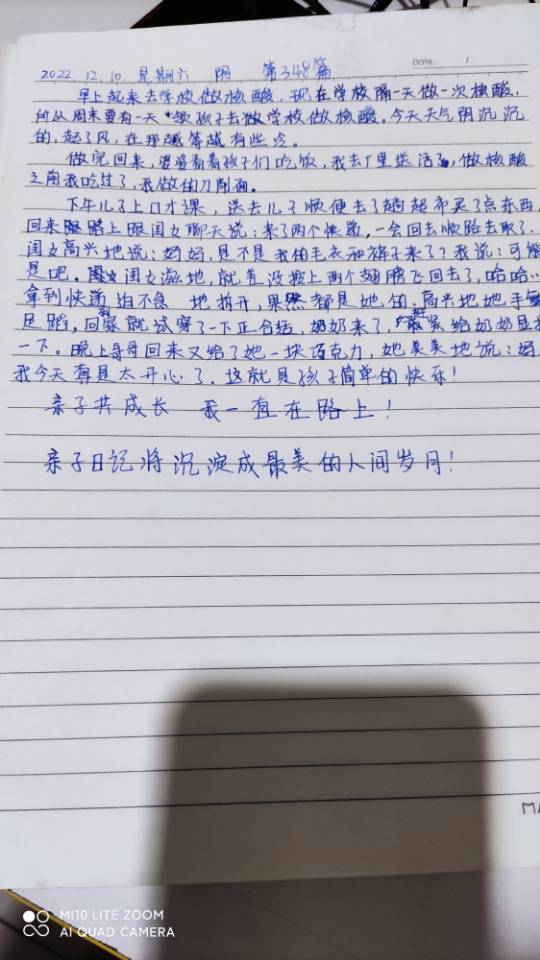 2022.12.10 星期六 阴 第348篇
Date. /
早上起来去学校做核酸,现在学校隔一天做一次核酸,
所以周末要有一天 领孩子去做学校做核酸。今天天气阴沉沉
的,起了风,在那越等越有些冷。
做完回来,婆婆看着孩子们吃饭,我去厂里送活了,做核酸
之前我吃过了,我做的刀削面。
下午儿子上口才课,送去儿子顺便去了趟超市买了点东西,
回来 路上跟闺女聊天说:来了两个快递,一会回去顺路去取了.
闺女高兴地说:妈妈,是不是我的毛衣和裤子来了?我说:可能
是吧。 闺女滋地,就差没按上两个翅膀飞回去了,哈哈…
拿到快递 迫不急 地拆开,果然都是她的,高兴地她手舞
足蹈,回家就试穿了一下正合适,奶奶来了, 赶紧给奶奶显摆
一下。晚上哥哥回来又给了她一块巧克力,她美美地说:妈
我今天真是太开心了.这就是孩子简单的快乐!
亲子共成长 我一直在路上!
亲子日记将沉淀成最美的人间岁月!
MI10 LITE ZOOM
AI QUAD CAMERA